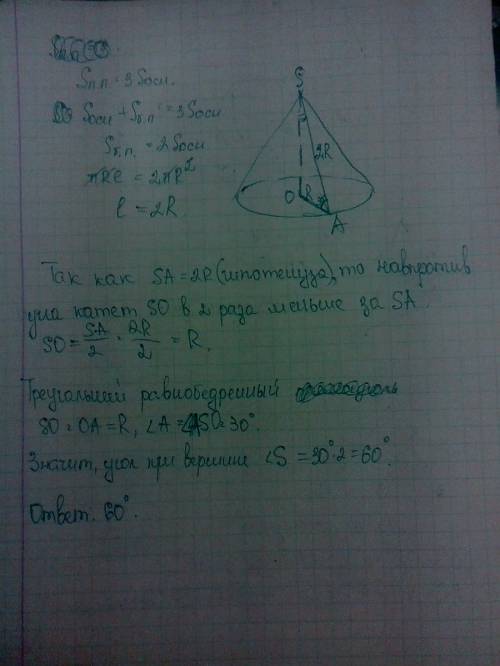 Sп.п = 3Sосн.
Sосн + Sб.п = 3Sосн
Sб.п. = 2Sосн
πRl = 2πR²
l = 2R
S
2R
O R
A
Так как SA = 2R (гипотенуза), то навпротив
угла катет SO в 2 раза меньше за SA.
SO = SA/2 = 2R/2 = R.
Треугольний равнобедренный
SO = OA = R, ∠A = ∠ASO = 30°.
Значит, угол при вершине ∠S = 30°·2 = 60°.
Ответ. 60°.